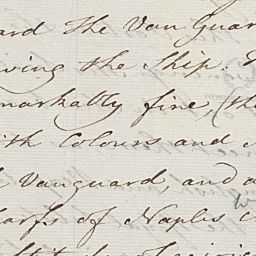 ard the Van Guar
wing the Ship.
markably fine, (th
ith Colours and
Vanguard, and a
arfs of Naples